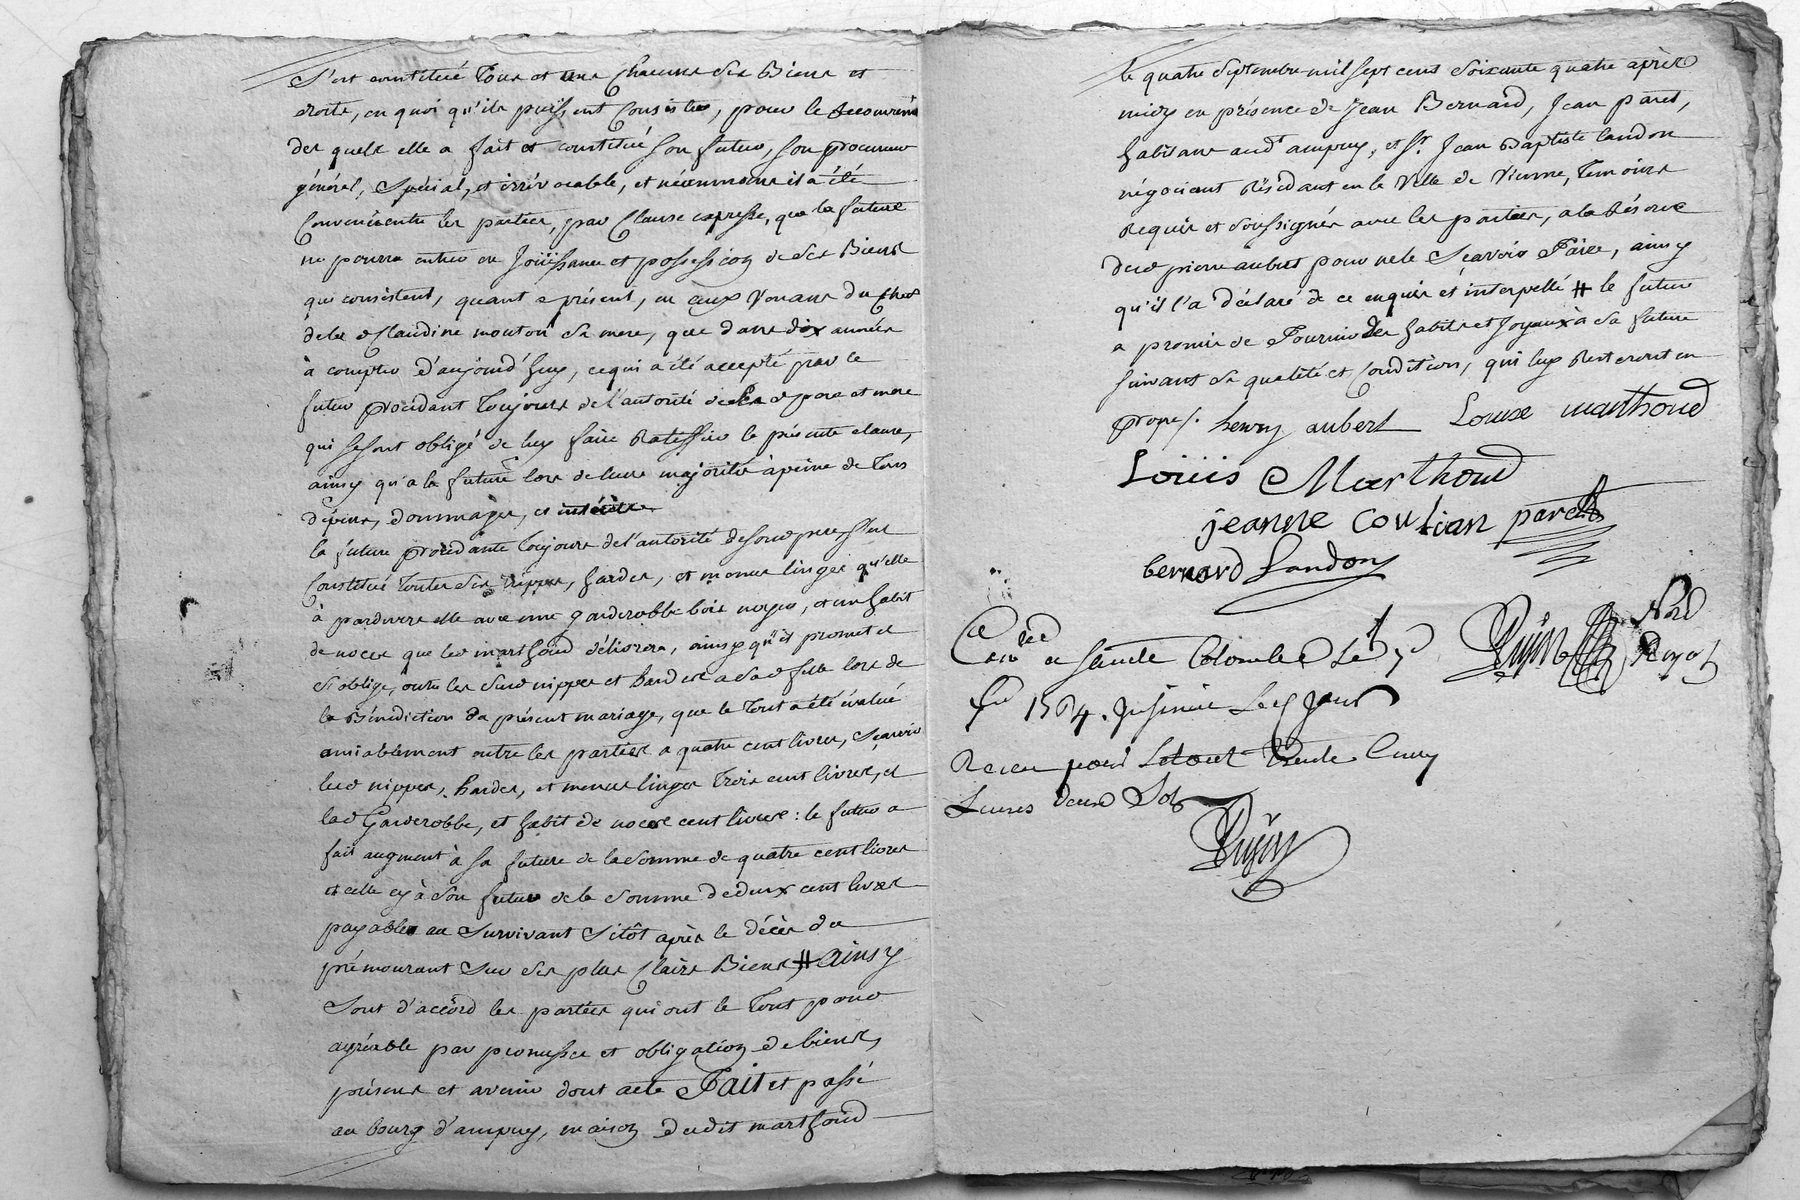 s'est constitué Tous et uns chacuns ses Biens et
droits, en quoi qu'ils puissent Consister, pour le recouvrement
des quels elle a fait et constitué son futur, son procureur
général, Spécial, et irrévocable, et néanmoins il a été
Convenu entre les parties, par Clause expresse, que la future
ne pourra entrer en Joüissance et possession de ses Biens
qui consistent, quant a présent, en ceux venans du chef
de lad Claudine mouton sa mere, que dans dix années
à compter d'aujourd'huy, ce qui a été accepté par le
futur procédant Toujours de l'autorité de sesd pere et mere
qui se sont obligé de luy faire Ratiffier la présente clause,
ainsy qu'a la future lors de leurs majorités à peine de Tous
dépens, dommages, et intérêts
la future procédante Toujours de l'autorité de sond pere s'est
Constitué Toutes ses nippes, hardes, et menus linges qu'elle
à pardevers elle avec une garderobbe bois noyer, et un habit
de noces que led marthoud délivrera, ainsy qu'il promet et
s'oblige, outre les susd nippes et hardes a sad fille lors de
la Bénédiction du présent mariage, que le Tout a été évalué
amiablement entre les parties a quatre cent livres, Sçavoir
lesd nippes, hardes, et menus linges Trois cent livres, et
lad Garderobbe, et habit de noces cent livres : le futur a
fait augment à sa future de la somme de quatre cent livres
et celle cy à son futur de la somme de deux cent livres
payables au survivant sitôt après le décès du
prémourant sur ses plus Clairs Biens # Ainsy
sont d'accord les parties qui ont le Tout pour
agréable par promesse et obligation de biens,
présens et avenir dont acte Fait et passé
au bourg d'ampuy, maison dudit marthoud
le quatre septembre mil sept cens soixante quatre après
midy en présence de Jean Bernard, Jean paret,
habitans aud ampuy, et Sr. Jean Baptiste landon
négociant Résidant en la Ville de Vienne, Temoins
Requis et soussignés avec les parties, a la Réserve
dud pierre aubert pour ne le Sçavoir Faire, ainsy
qu'il l'a déclaré de ce enquis et interpellé # le futur
a promis de Fournir des habits et Joyaux à sa future
suivant sa qualité et Condition, qui luy Resteront en
propre /. henry aubert Louise marthoud
Loüis Marthoud
jeanne coulian paret
bernard Landon
Con lé a sainte Colombe Le 7e
1764. Insinué Led Jour
Receu pour Letout Trente Cinq
Livres deux Sols